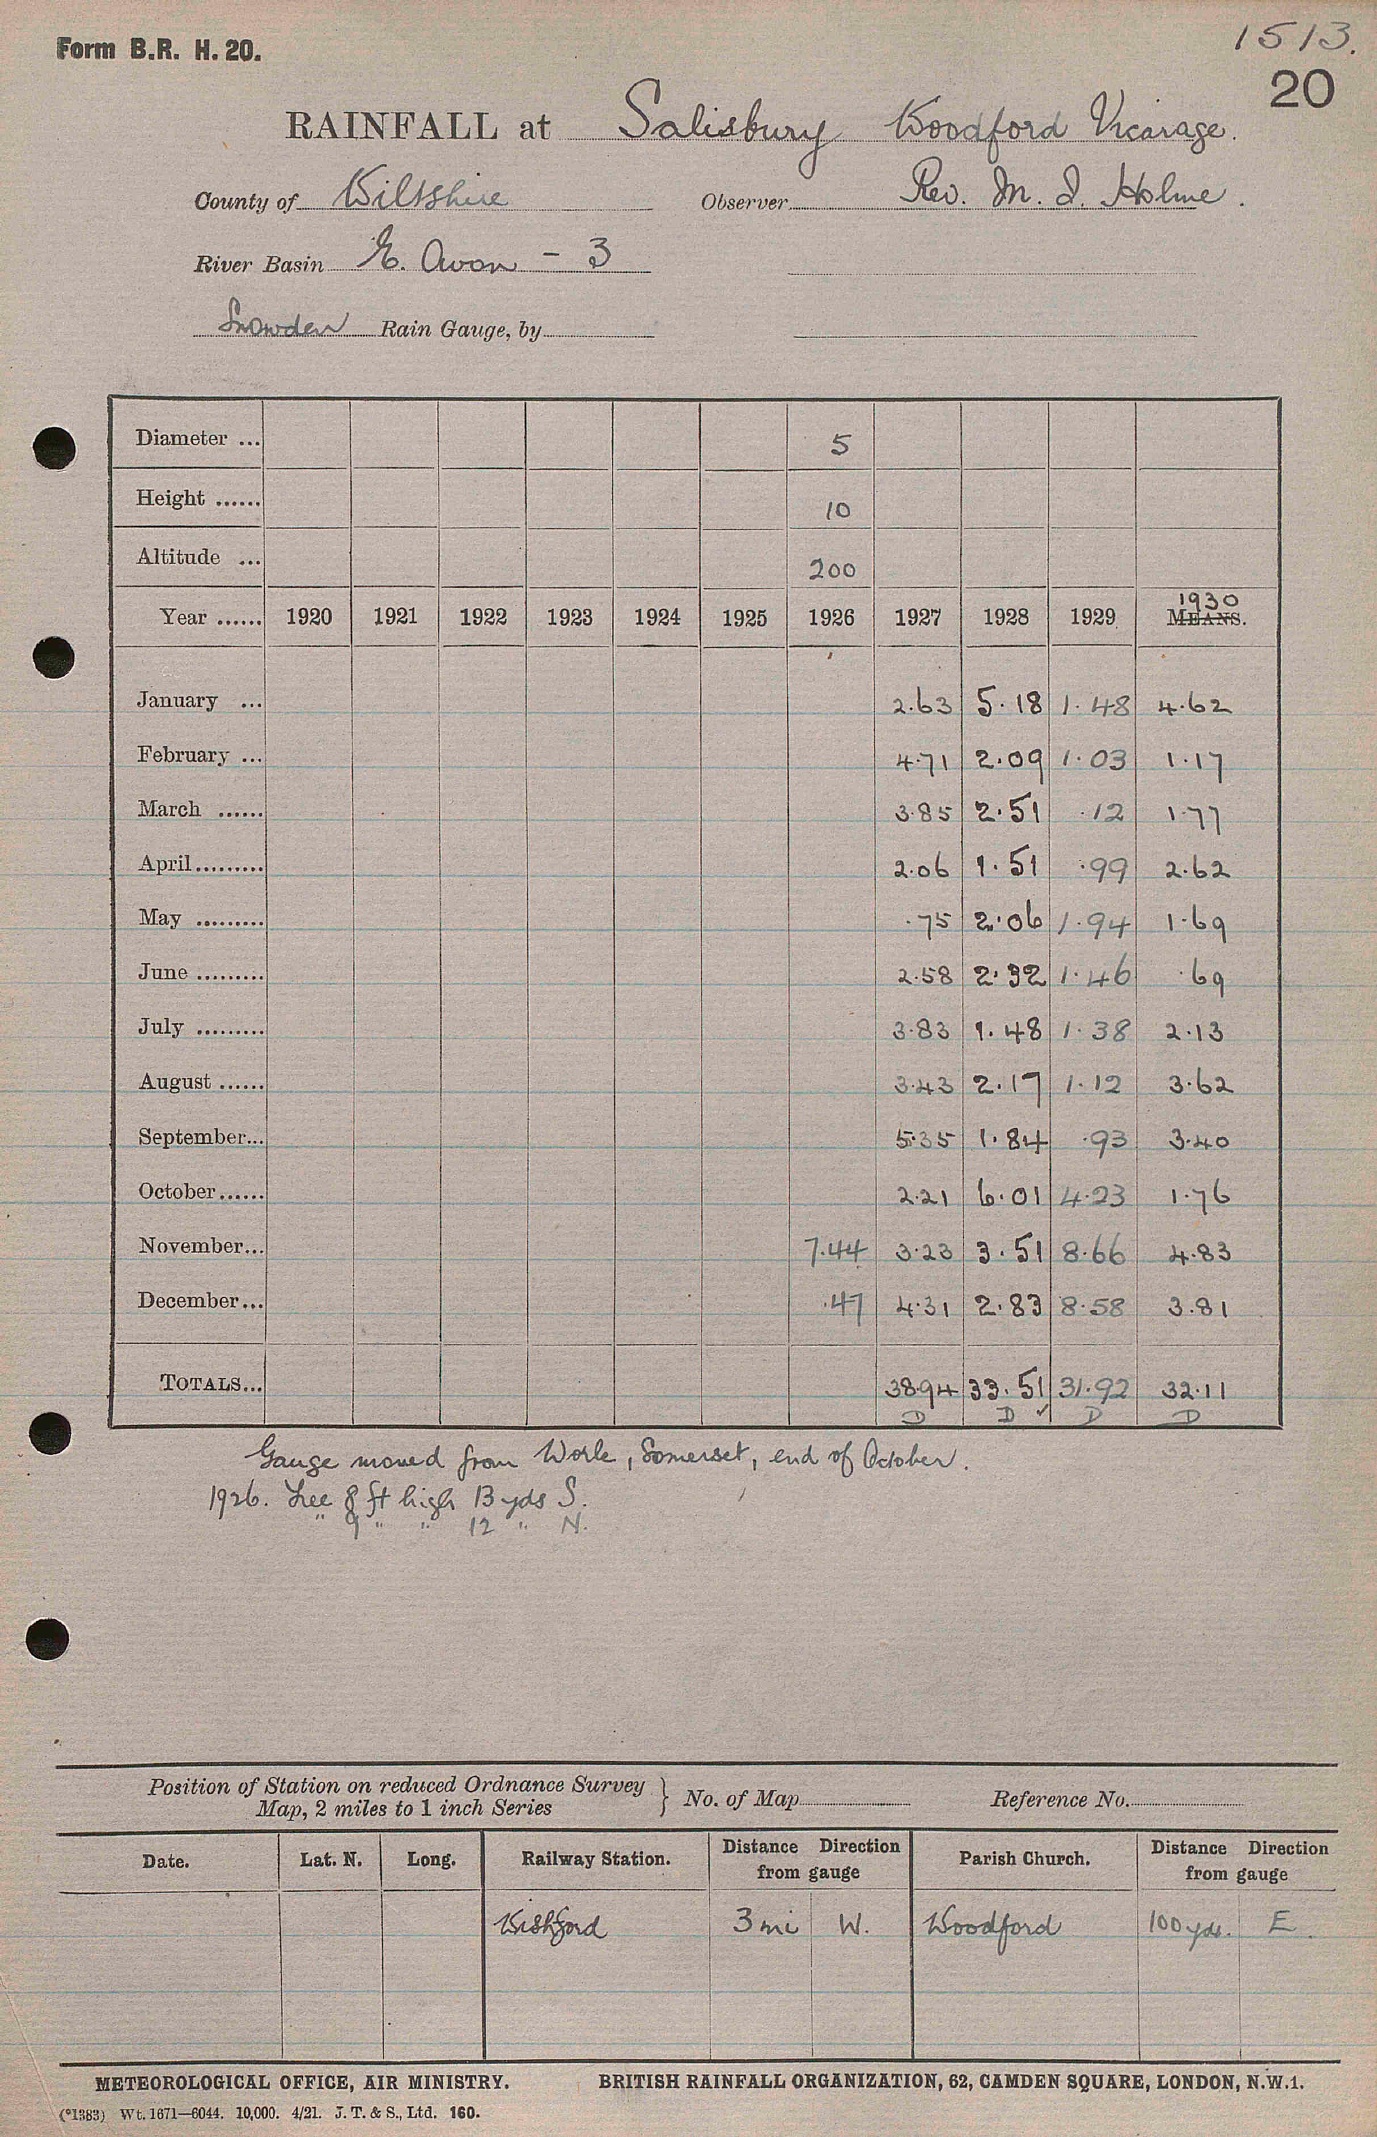 Form B.R. H. 20.
1513.
20
RAINFALL at Salisbury Woodford Vicarage.
County of Wiltshire Observer Rev. M. I. Holme.
River Basin E. Avon - 3
Snowden Rain Gauge, by
Diameter ... 5
Height ...... 10
Altitude ... 200
1930
Year ...... 1920 1921 1922 1923 1924 1925 1926 1927 1928 1929 MEANS.
January ... 2.63 5.18 1.48 4.62
February ... 4.71 2.09 1.03 1.17
March ...... 3.85 2.51 .12 1.77
April ......... 2.06 1.51 .99 2.62
May ......... .75 2.06 1.94 1.69
June ......... 2.58 2.32 1.46 .69
July ......... 3.83 1.48 1.38 2.13
August ...... 3.43 2.17 1.12 3.62
September... 5.35 1.84 .93 3.40
October...... 2.21 6.01 4.23 1.76
November... 7.44 3.23 3.51 8.66 4.83
December... .47 4.31 2.83 8.58 3.81
TOTALS... 38.94 33.51 31.92 32.11
D D ✓ D D
Gauge moved from Worle, Somerset, end of October.
1926. Tree 8 ft high 13 yds S.
" 9 " " 12 " N.
Position of Station on reduced Ordnance Survey } No. of Map Reference No.
Map, 2 miles to 1 inch Series
Date. Lat. N. Long. Railway Station. Distance Direction Parish Church. Distance Direction
from gauge from gauge
Wishford 3 mi W. Woodford 100 yds. E.
METEOROLOGICAL OFFICE, AIR MINISTRY. BRITISH RAINFALL ORGANIZATION, 62, CAMDEN SQUARE, LONDON, N.W.1.
(*1383) Wt. 1671—6044. 10,000. 4/21. J. T. & S., Ltd. 160.